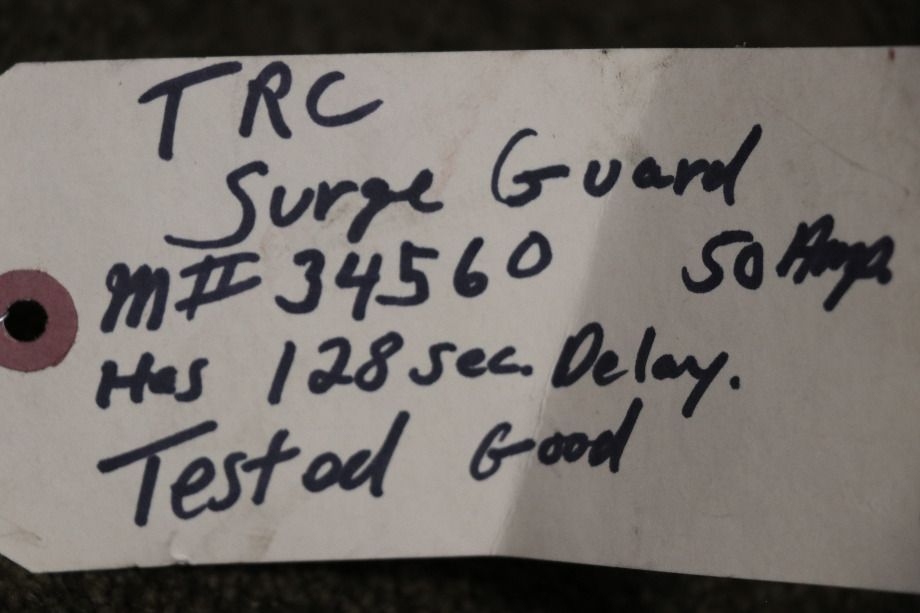 TRC
Surge Guard
M# 34560 50 Amp.
Has 128 sec. Delay.
Tested Good